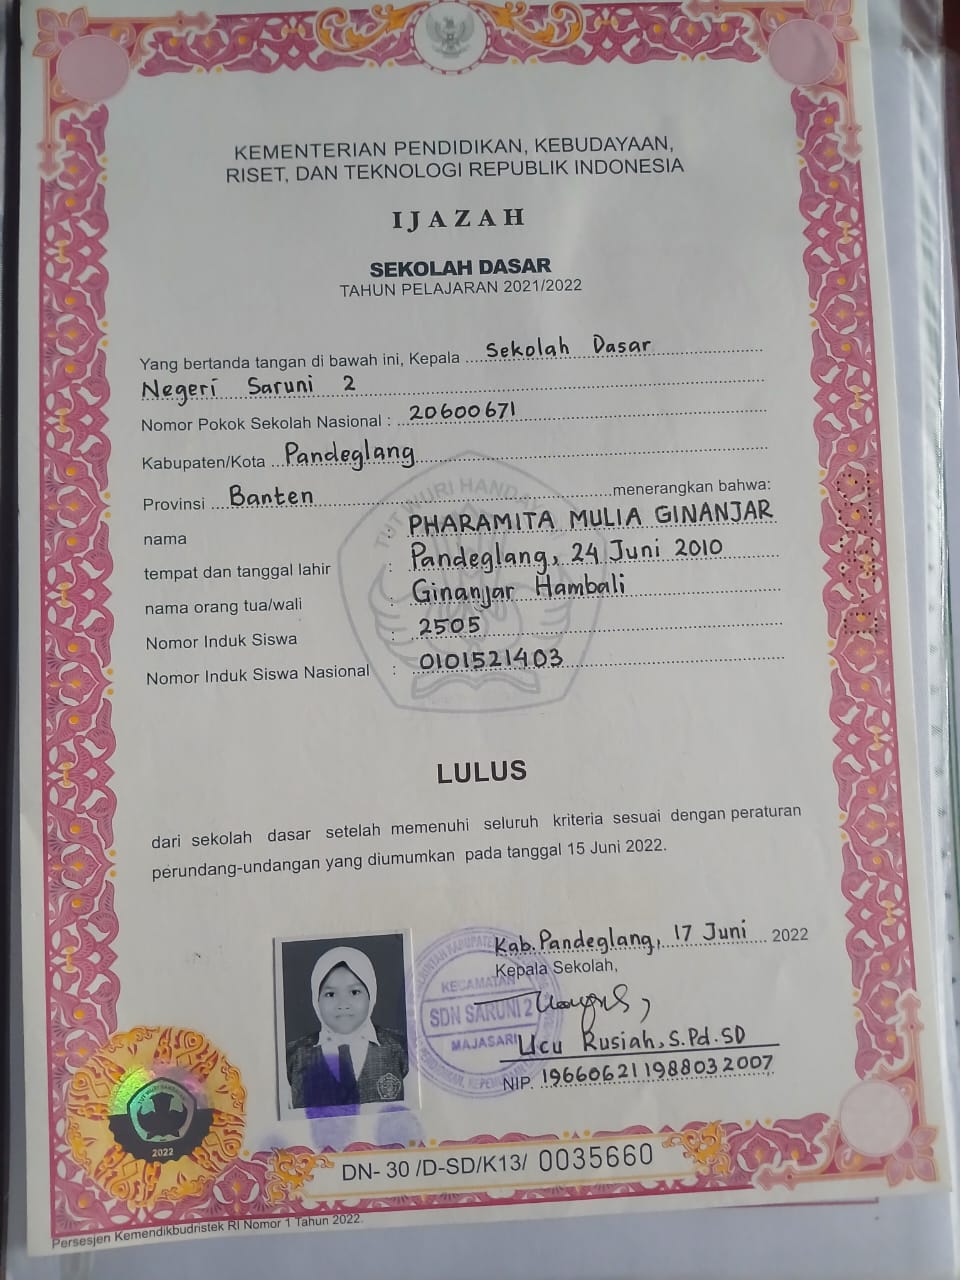 KEMENTERIAN PENDIDIKAN, KEBUDAYAAN,
RISET, DAN TEKNOLOGI REPUBLIK INDONESIA
IJAZAH
SEKOLAH DASAR
TAHUN PELAJARAN 2021/2022
Yang bertanda tangan di bawah ini, Kepala Sekolah Dasar
Negeri Saruni 2
Nomor Pokok Sekolah Nasional : 20600671
Kabupaten/Kota Pandeglang
Provinsi Banten menerangkan bahwa:
nama : PHARAMITA MULIA GINANJAR
tempat dan tanggal lahir : Pandeglang, 24 Juni 2010
nama orang tua/wali : Ginanjar Hambali
Nomor Induk Siswa : 2505
Nomor Induk Siswa Nasional : 0101521403
TUT WURI HANDAYANI
LULUS
dari sekolah dasar setelah memenuhi seluruh kriteria sesuai dengan peraturan
perundang-undangan yang diumumkan pada tanggal 15 Juni 2022.
Kab. Pandeglang, 17 Juni 2022
Kepala Sekolah,
KECAMATAN
SDN SARUNI 2
MAJASARI
Ucu Rusiah, S.Pd.SD
NIP. 196606211988032007
TUT WURI HANDAYANI
2022
DN- 30 /D-SD/K13/ 0035660
Persesjen Kemendikbudristek RI Nomor 1 Tahun 2022.